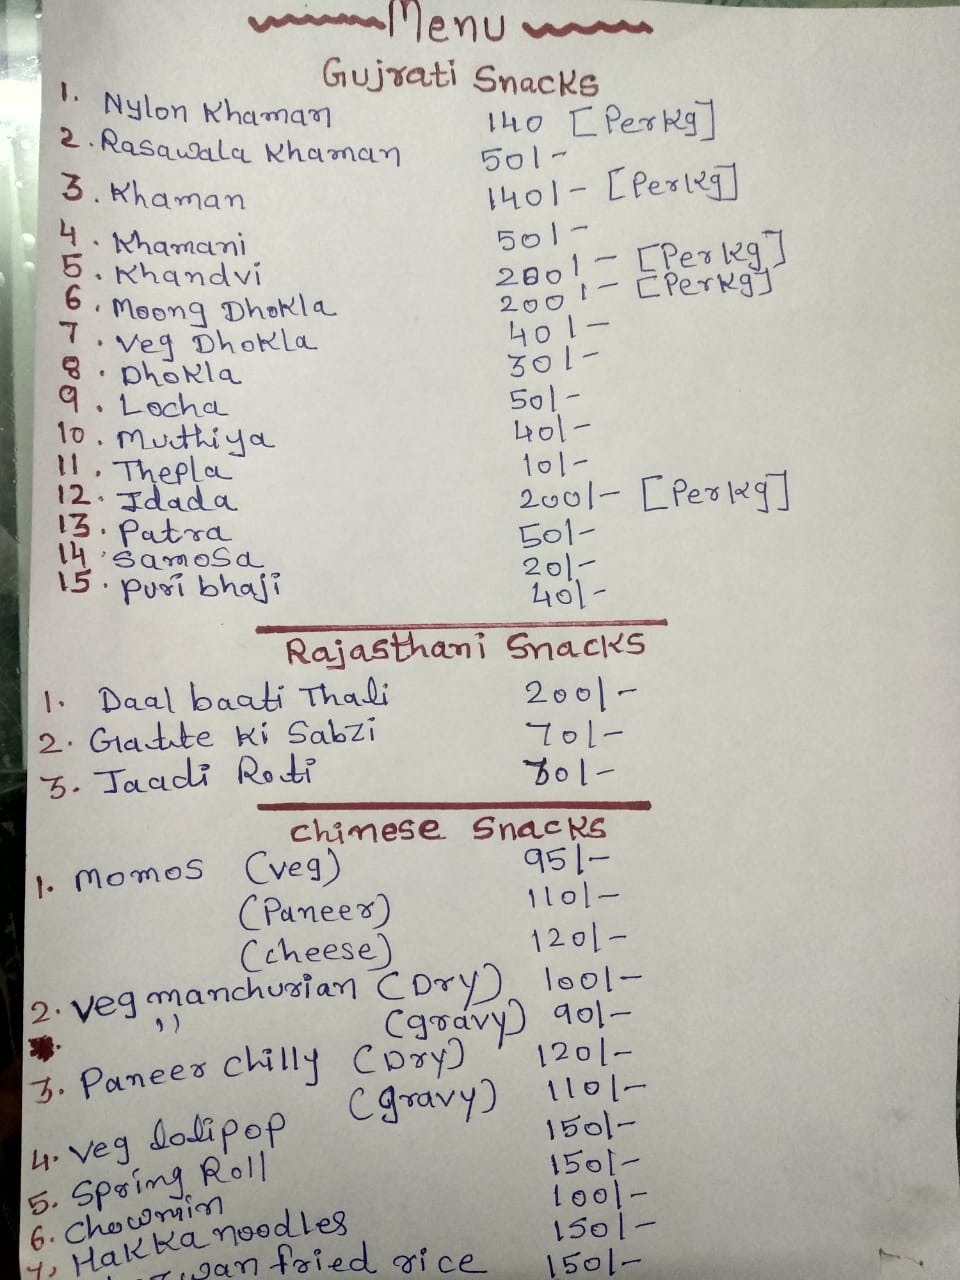 Menu
Gujrati Snacks
1. Nylon Khaman 140 [Per Kg]
2. Rasawala Khaman 50/-
3. Khaman 140/- [Per Kg]
4. Khamani 50/-
5. Khandvi 200/- [Per Kg]
6. Moong Dhokla 200/- [Per Kg]
7. Veg Dhokla 40/-
8. Dhokla 30/-
9. Locha 50/-
10. Muthiya 40/-
11. Thepla 10/-
12. Idada 200/- [Per Kg]
13. Patra 50/-
14. Samosa 20/-
15. Puri bhaji 40/-
Rajasthani Snacks
1. Daal baati Thali 200/-
2. Gatte Ki Sabzi 70/-
3. Jaadi Roti 30/-
Chinese Snacks
1. Momos (Veg) 95/-
(Paneer) 110/-
(cheese) 120/-
2. Veg manchurian (Dry) 100/-
" (gravy) 90/-
3. Paneer chilly (Dry) 120/-
(gravy) 110/-
4. Veg lolipop 150/-
5. Spring Roll 150/-
6. Chowmin 100/-
7. Hakka noodles 150/-
fried rice 150/-